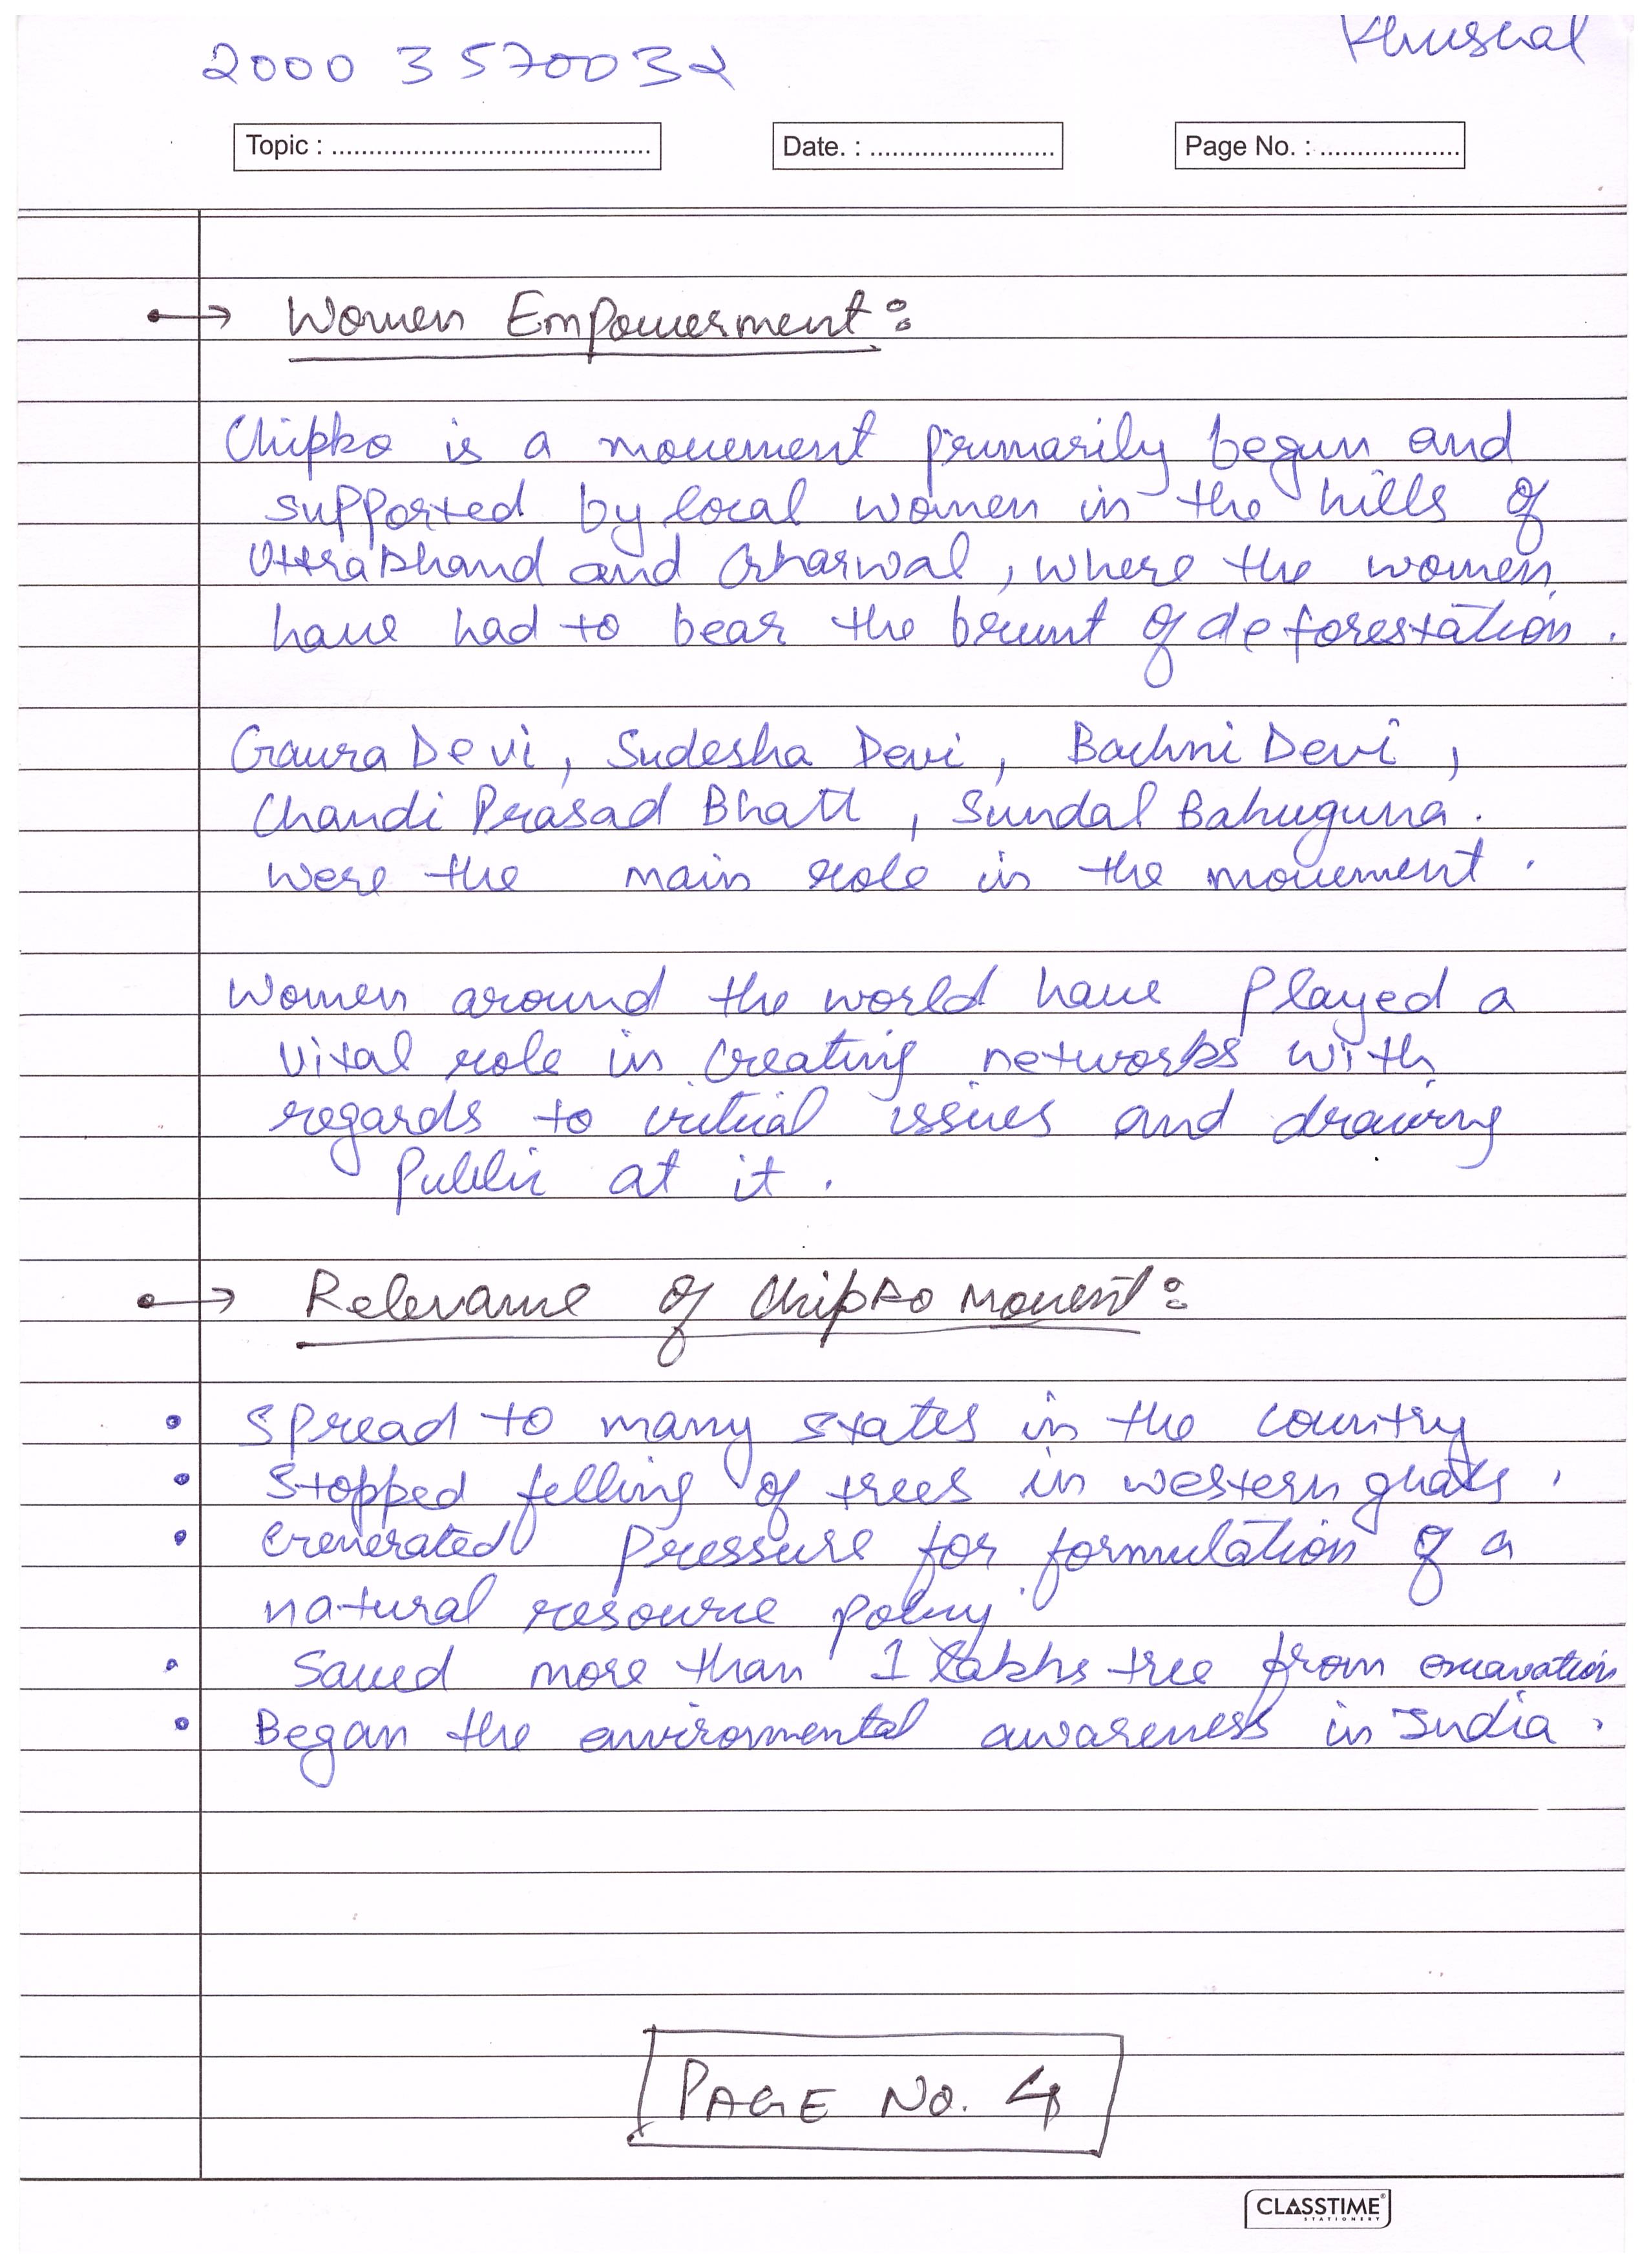 2000 3570032
Khushal
Topic : ..........................................
Date. : .........................
Page No. : ...................
Women Empowerment :
Chipko is a movement primarily begun and
supported by local women in the hills of
Uttrakhand and Gharwal, where the women
have had to bear the brunt of deforestation.
Gaura Devi, Sudesha Devi, Bachni Devi,
Chandi Prasad Bhatt, Sundal Bahuguna.
were the main role in the movement.
Women around the world have played a
vital role in creating networks with
regards to critical issues and drawing
public at it.
Relevance of Chipko Movent :
• Spread to many states in the country
• Stopped felling of trees in western ghats.
• Generated pressure for formulation of a
natural resource policy
• Saved more than 1 lakhs tree from excavation
• Began the environmental awareness in India.
PAGE NO. 4
CLASSTIME
STATIONERY